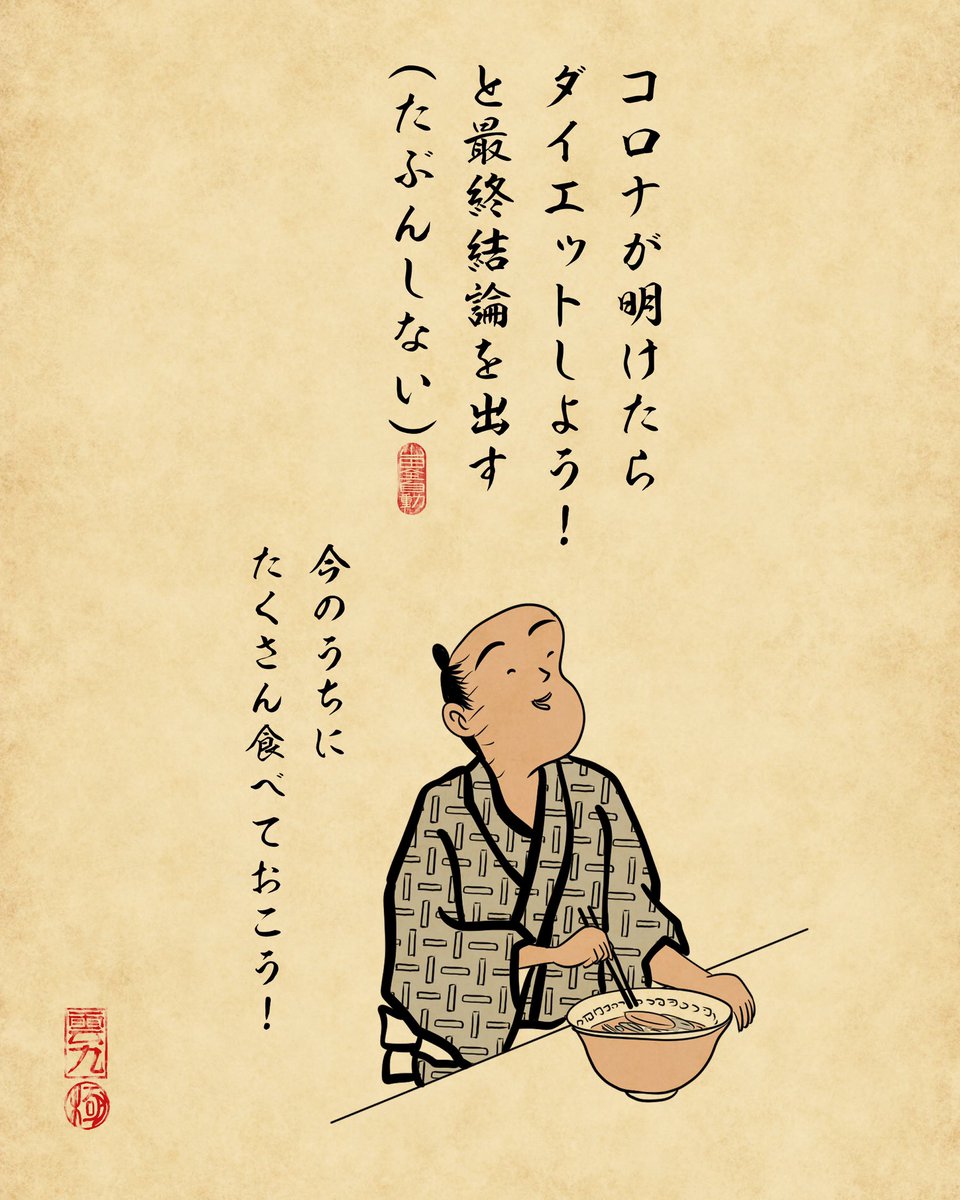 コロナが明けたら
ダイエットしよう！
と最終結論を出す
（たぶんしない）
今のうちに
たくさん食べておこう！